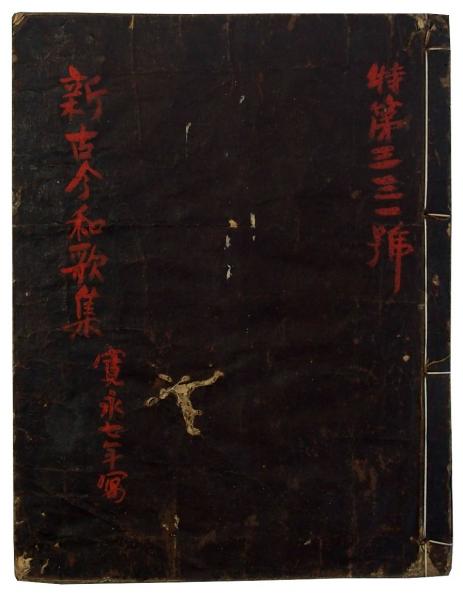 特第三三一號
新古今和歌集
寳永七年写